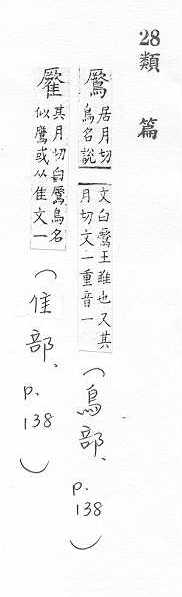 28 類篇
鷢
居月切
鳥名說
文白鷢王雎也又其
月切文一重音一
(鳥部, p. 138)
其月切白鷢鳥名
似鷹或从隹文一
(隹部, p. 138)